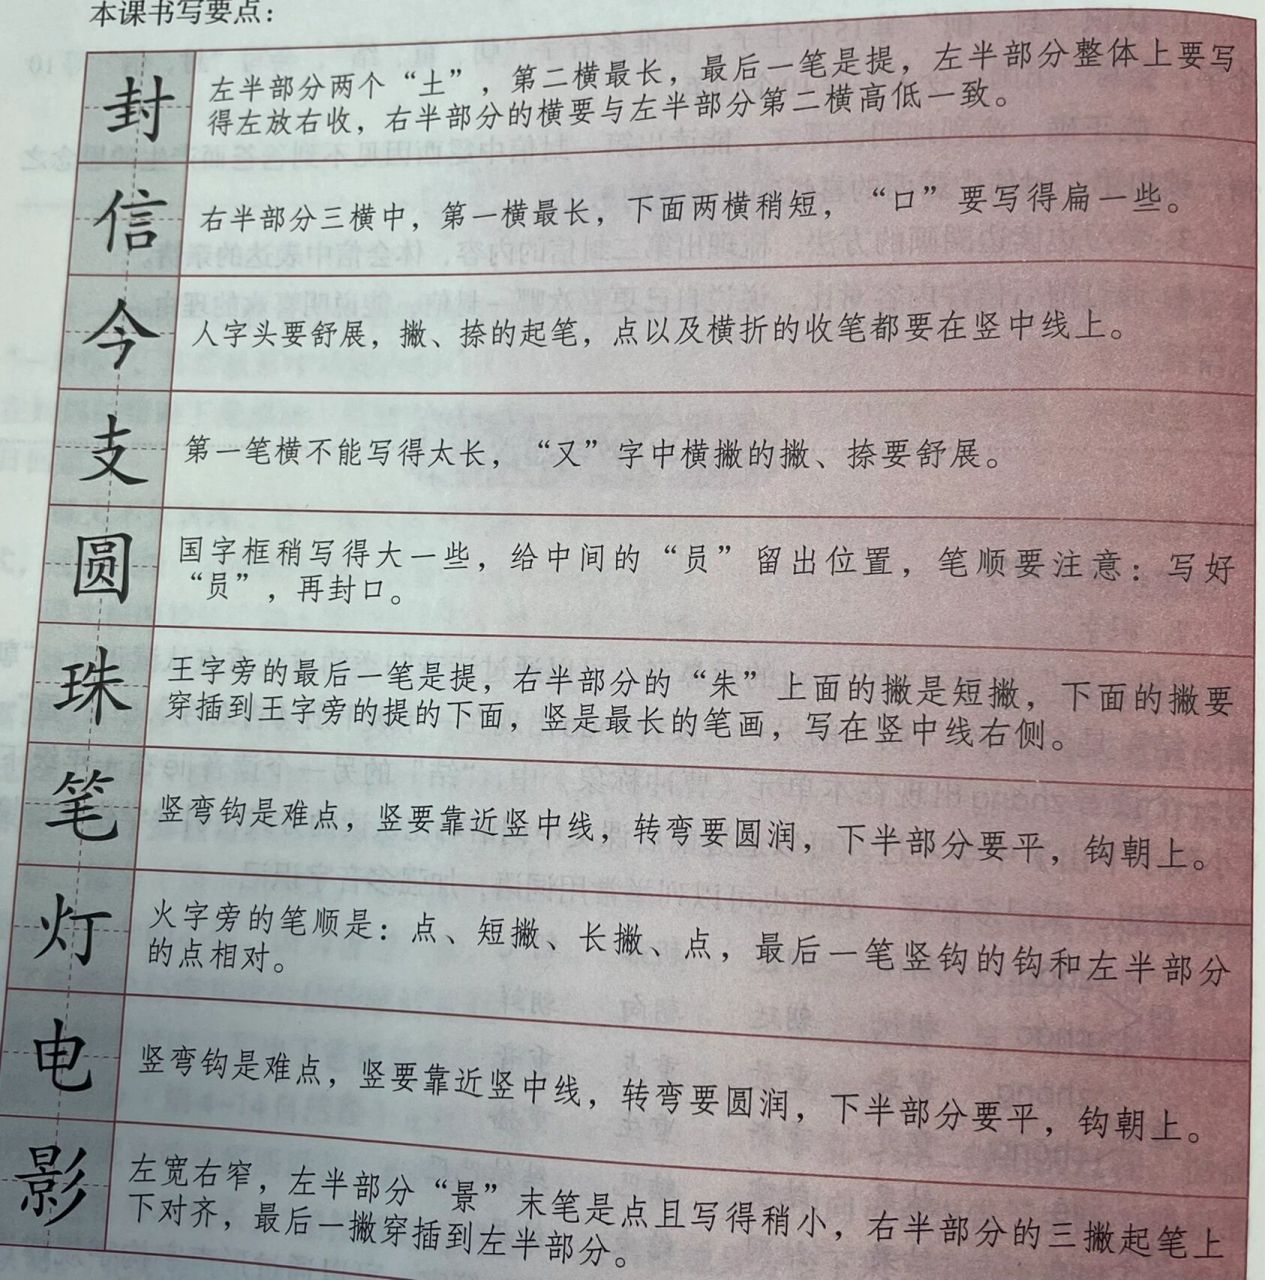 本课书写要点：
封
左半部分两个“土”，第二横最长，最后一笔是提，左半部分整体上要写
得左放右收，右半部分的横要与左半部分第二横高低一致。
信
右半部分三横中，第一横最长，下面两横稍短，“口”要写得扁一些。
今
人字头要舒展，撇、捺的起笔，点以及横折的收笔都要在竖中线上。
支
第一笔横不能写得太长，“又”字中横撇的撇、捺要舒展。
圆
国字框稍写得大一些，给中间的“员”留出位置，笔顺要注意：写好
“员”，再封口。
珠
王字旁的最后一笔是提，右半部分的“朱”上面的撇是短撇，下面的撇要
穿插到王字旁的提的下面，竖是最长的笔画，写在竖中线右侧。
笔
竖弯钩是难点，竖要靠近竖中线，转弯要圆润，下半部分要平，钩朝上。
灯
火字旁的笔顺是：点、短撇、长撇、点，最后一笔竖钩的钩和左半部分
的点相对。
电
竖弯钩是难点，竖要靠近竖中线，转弯要圆润，下半部分要平，钩朝上。
影
左宽右窄，左半部分“景”末笔是点且写得稍小，右半部分的三撇起笔上
下对齐，最后一撇穿插到左半部分。